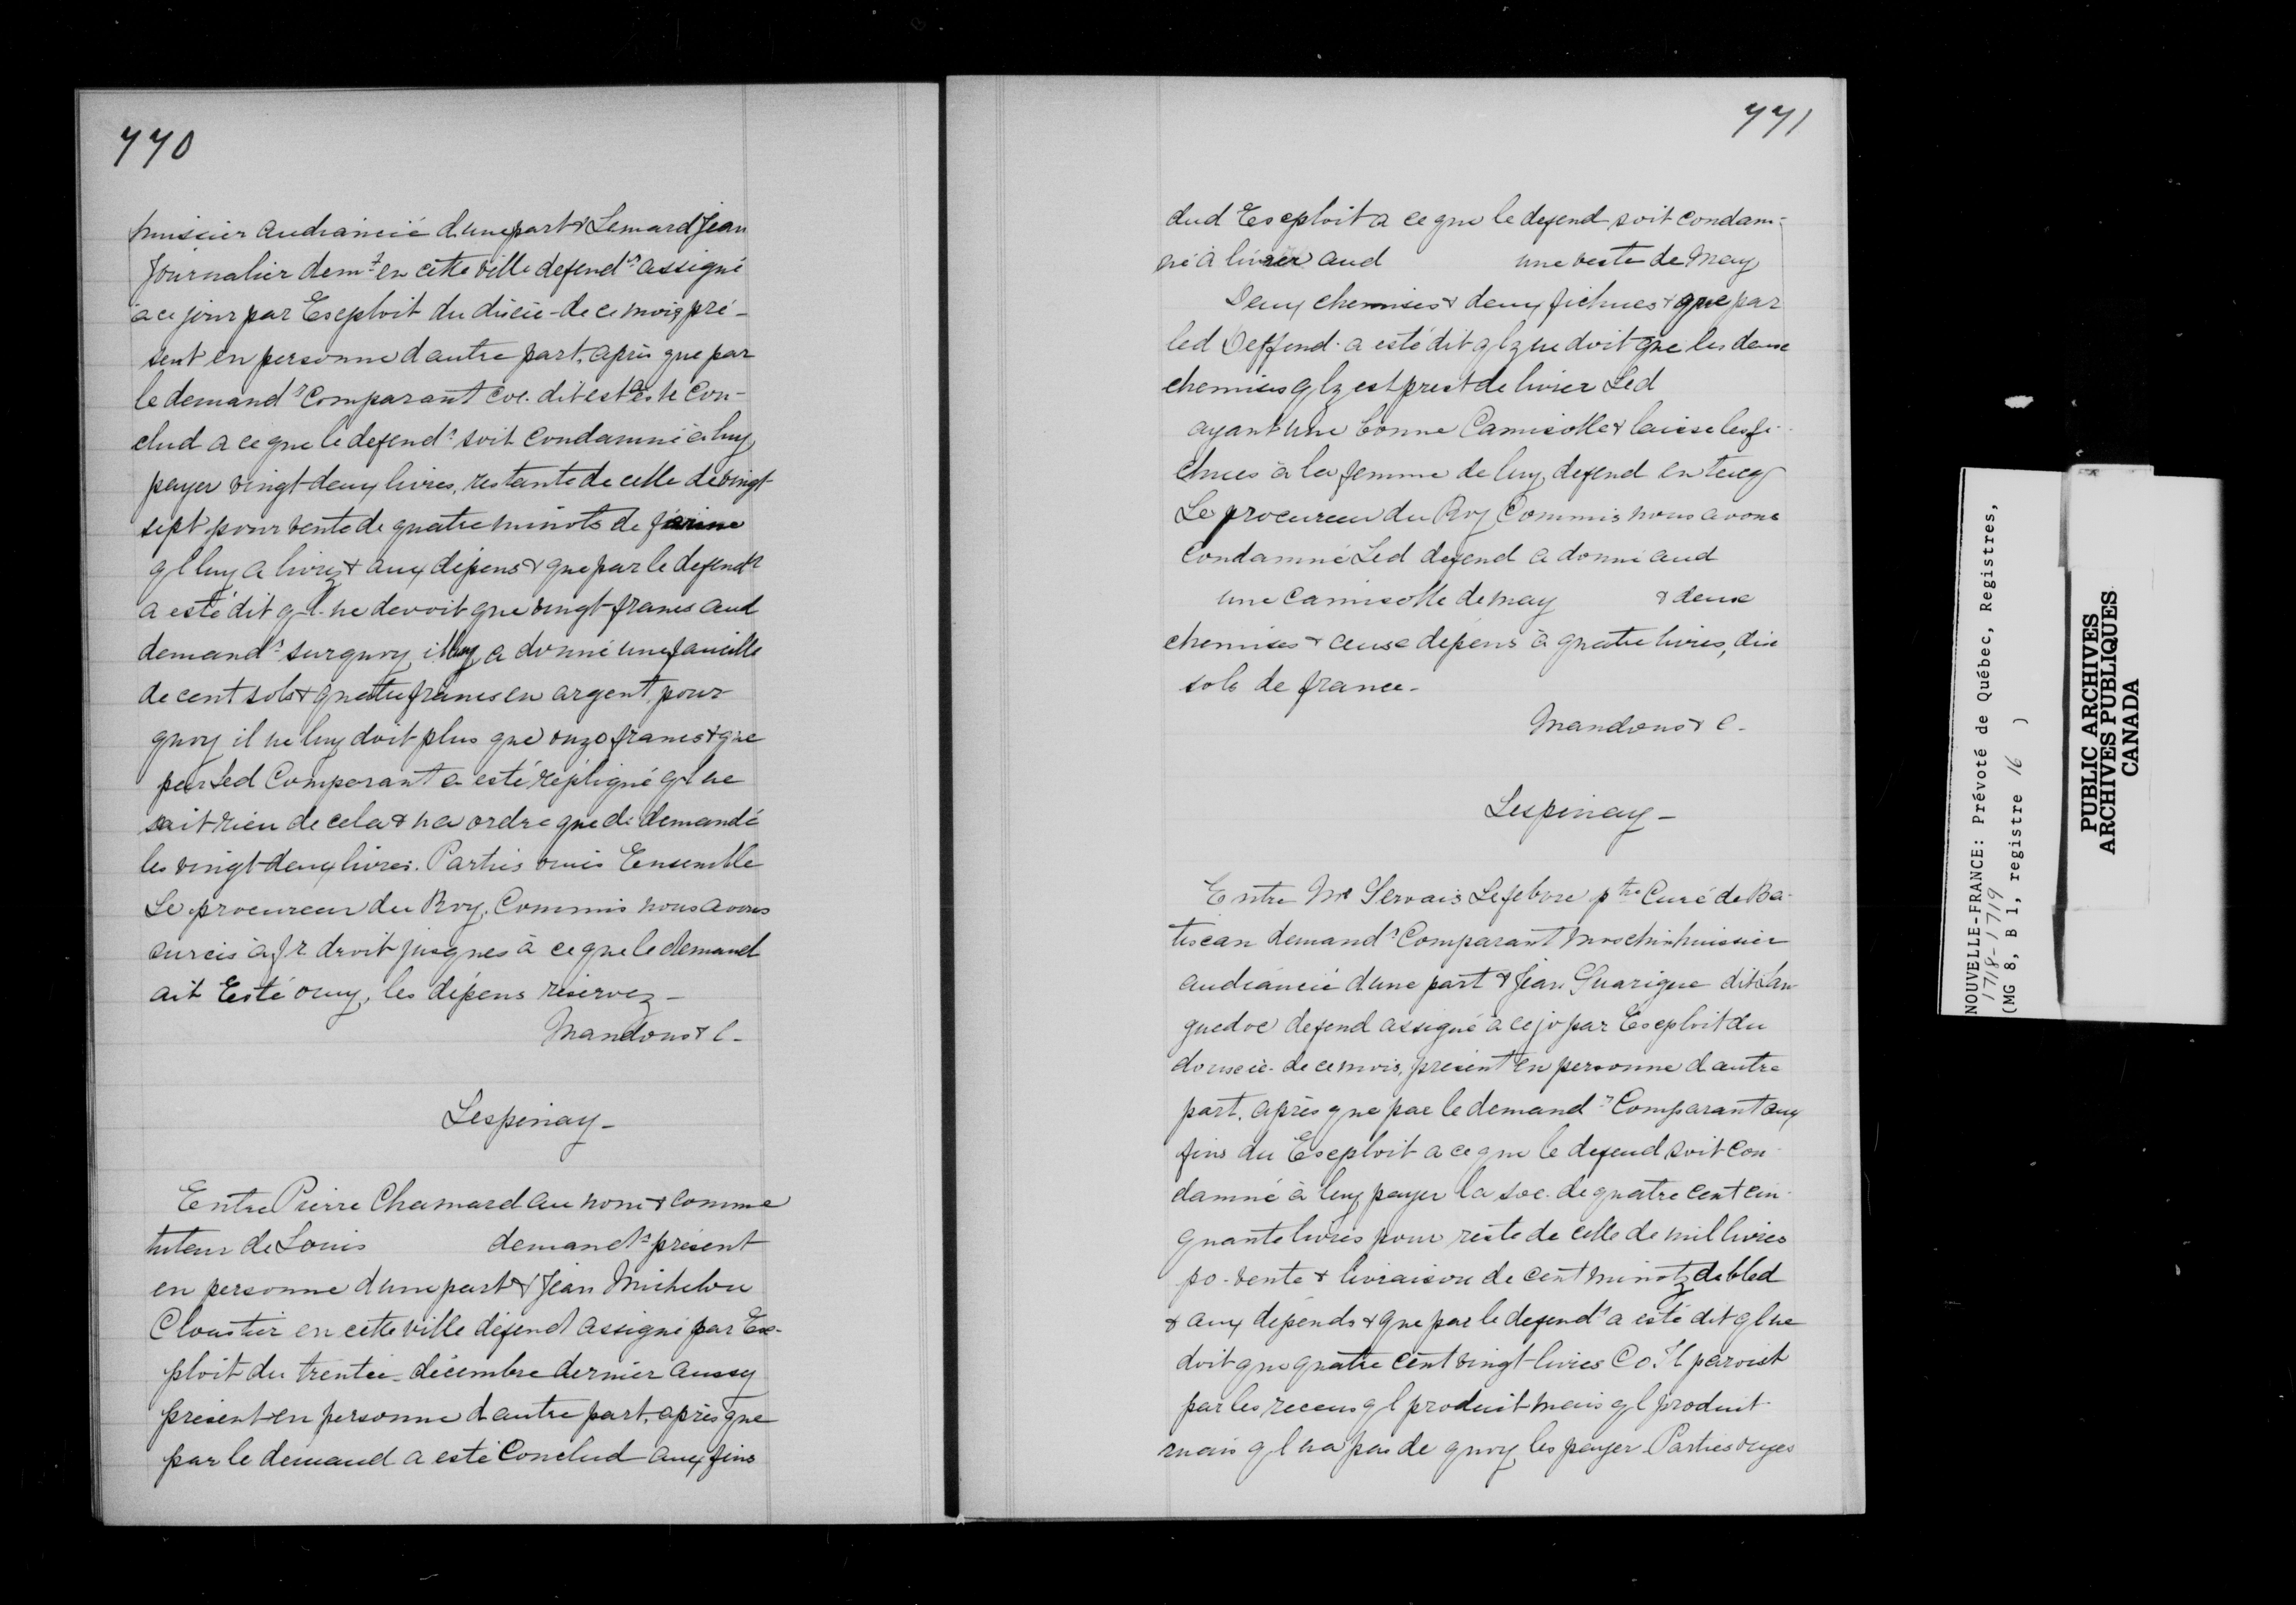 770
huissier audiancié d'une part & Lemard Jean
Journalier demt en cette ville defendr assigné
à ce jour par Exploit du dixie - de ce mois pré-
sent en personne d'autre part, après que par
le demandr Comparant coe. dit est a este Con-
clud a ce que le defendr soit condamné à luy
payer vingt-deux livres, restante de celle de vingt
sept pour vente de quatre minots de farine
ql luy a livrez & aux dépens & que par le defendr
a esté dit ql. ne devoit que vingt francs aud
demandr surquoy il luy a donné une faucille
de cent sols & quatre francs en argent, pour
quoy il ne luy doit plus que onze francs & que
par Led Comparant a esté répliqué ql ne
sait rien de cela & n'a ordre que de demandé
les vingt-deux livres. Parties ouies Ensemble
Le procureur du Roy, Commis nous avons
surcis à fr droit jusques à ce que le demand
ait Esté ouy, les dépens réservez -
Mandons & c -
Lespinay -
Entre Pierre Chamard au nom & comme
tuteur de Louis demandr présent
en personne d'une part & Jean Michelon
Cloustier en cette ville défend assigné par Ex-
ploit du trentie - décembre dernier aussy
présent en personne d'autre part, après que
par le demand a esté Conclud aux fins
771
dud Exploit a ce que le defend soit condam-
né à livrer aud une veste de May
Deux chemises & deux fichues & que par
led Deffend. a esté dit qlz ne doit que les deux
chemises qlz est prest de livrer Led
ayant une bonne Camisolle & laisse les fi-
chues à la femme de luy, defend
Le procureur du Roy Commis nous avons
condamné Led defend a donné aud
une camisolle de may & deux
chemises & ceuse dépens à quatre livres, dix
sols de france -
Mandons & c -
Lespinay -
Entre Mr Gervais Lefebvre ptre Curé de Ba-
tiscan demandr Comparant huissier
audiancié d'une part & Jean Guarigue dit Lan-
guedoc defend assigné à ce jo par Exploit du
douxie - de ce mois, présent en personne d'autre
part, après que par le demandr Comparant aux
fins du Exploit a ce que le defend soit con-
damné à luy payer la soe. de quatre cent cin-
quante livres pour reste de celle de mil livres
po - vente & livraison de cent minotz de bled
& aux depends & que par le defendr a esté dit ql ne
doit que quatre cent vingt livres Co. Il paroist
par les receus ql produit mais ql produit
mais ql n'a pas de quoy les payer Parties ouyes
NOUVELLE-FRANCE: Prévoté de Québec, Registres,
1718-1719
(MG 8, B 1, registre 16 )
PUBLIC ARCHIVES
ARCHIVES PUBLIQUES
CANADA